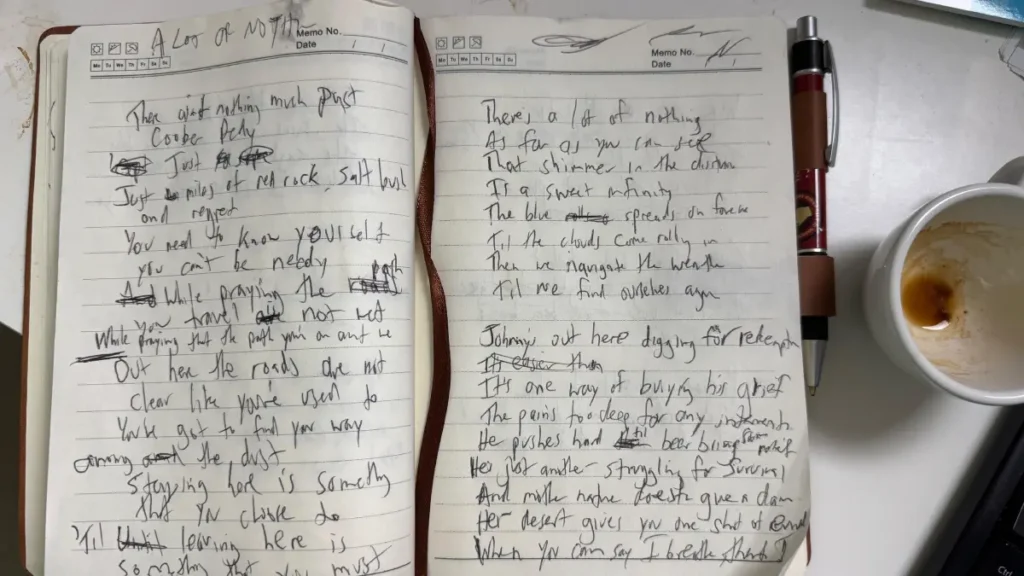 A LOT OF NOTH
Memo No.
Date / /
Mo Tu We Th Fr Sa Su
There aint nothing much past
Coober Pedy
Just
Just miles of red rock, salt bush
and regret
You need to know yourself
you can't be needy
While praying the path
you travel not wet
While praying that the path you're on aint we
Out here the roads are not
clear like you're used to
You've got to find your way
among the dust
Stopping here is something
that you choose to
'Til leaving here is
something that you must
Memo No.
Date
Mo Tu We Th Fr Sa Su
There's a lot of nothing
As far as you can see
That shimmer in the distan
Is a sweet infinity
The blue spreds on foreve
Til the clouds come rolly in
Then we navigate the weathe
Til we find ourselves agin
Johnny's out here digging for redempti
It's easier than
It's one way of burying his grief
The pains too deep for any instruments
He pushes hard beer brings relief
He's just another struggling for survival
And mother nature doesn't give a dam
Her desert gives you one shot at
When you can say I breathe
Ctrl